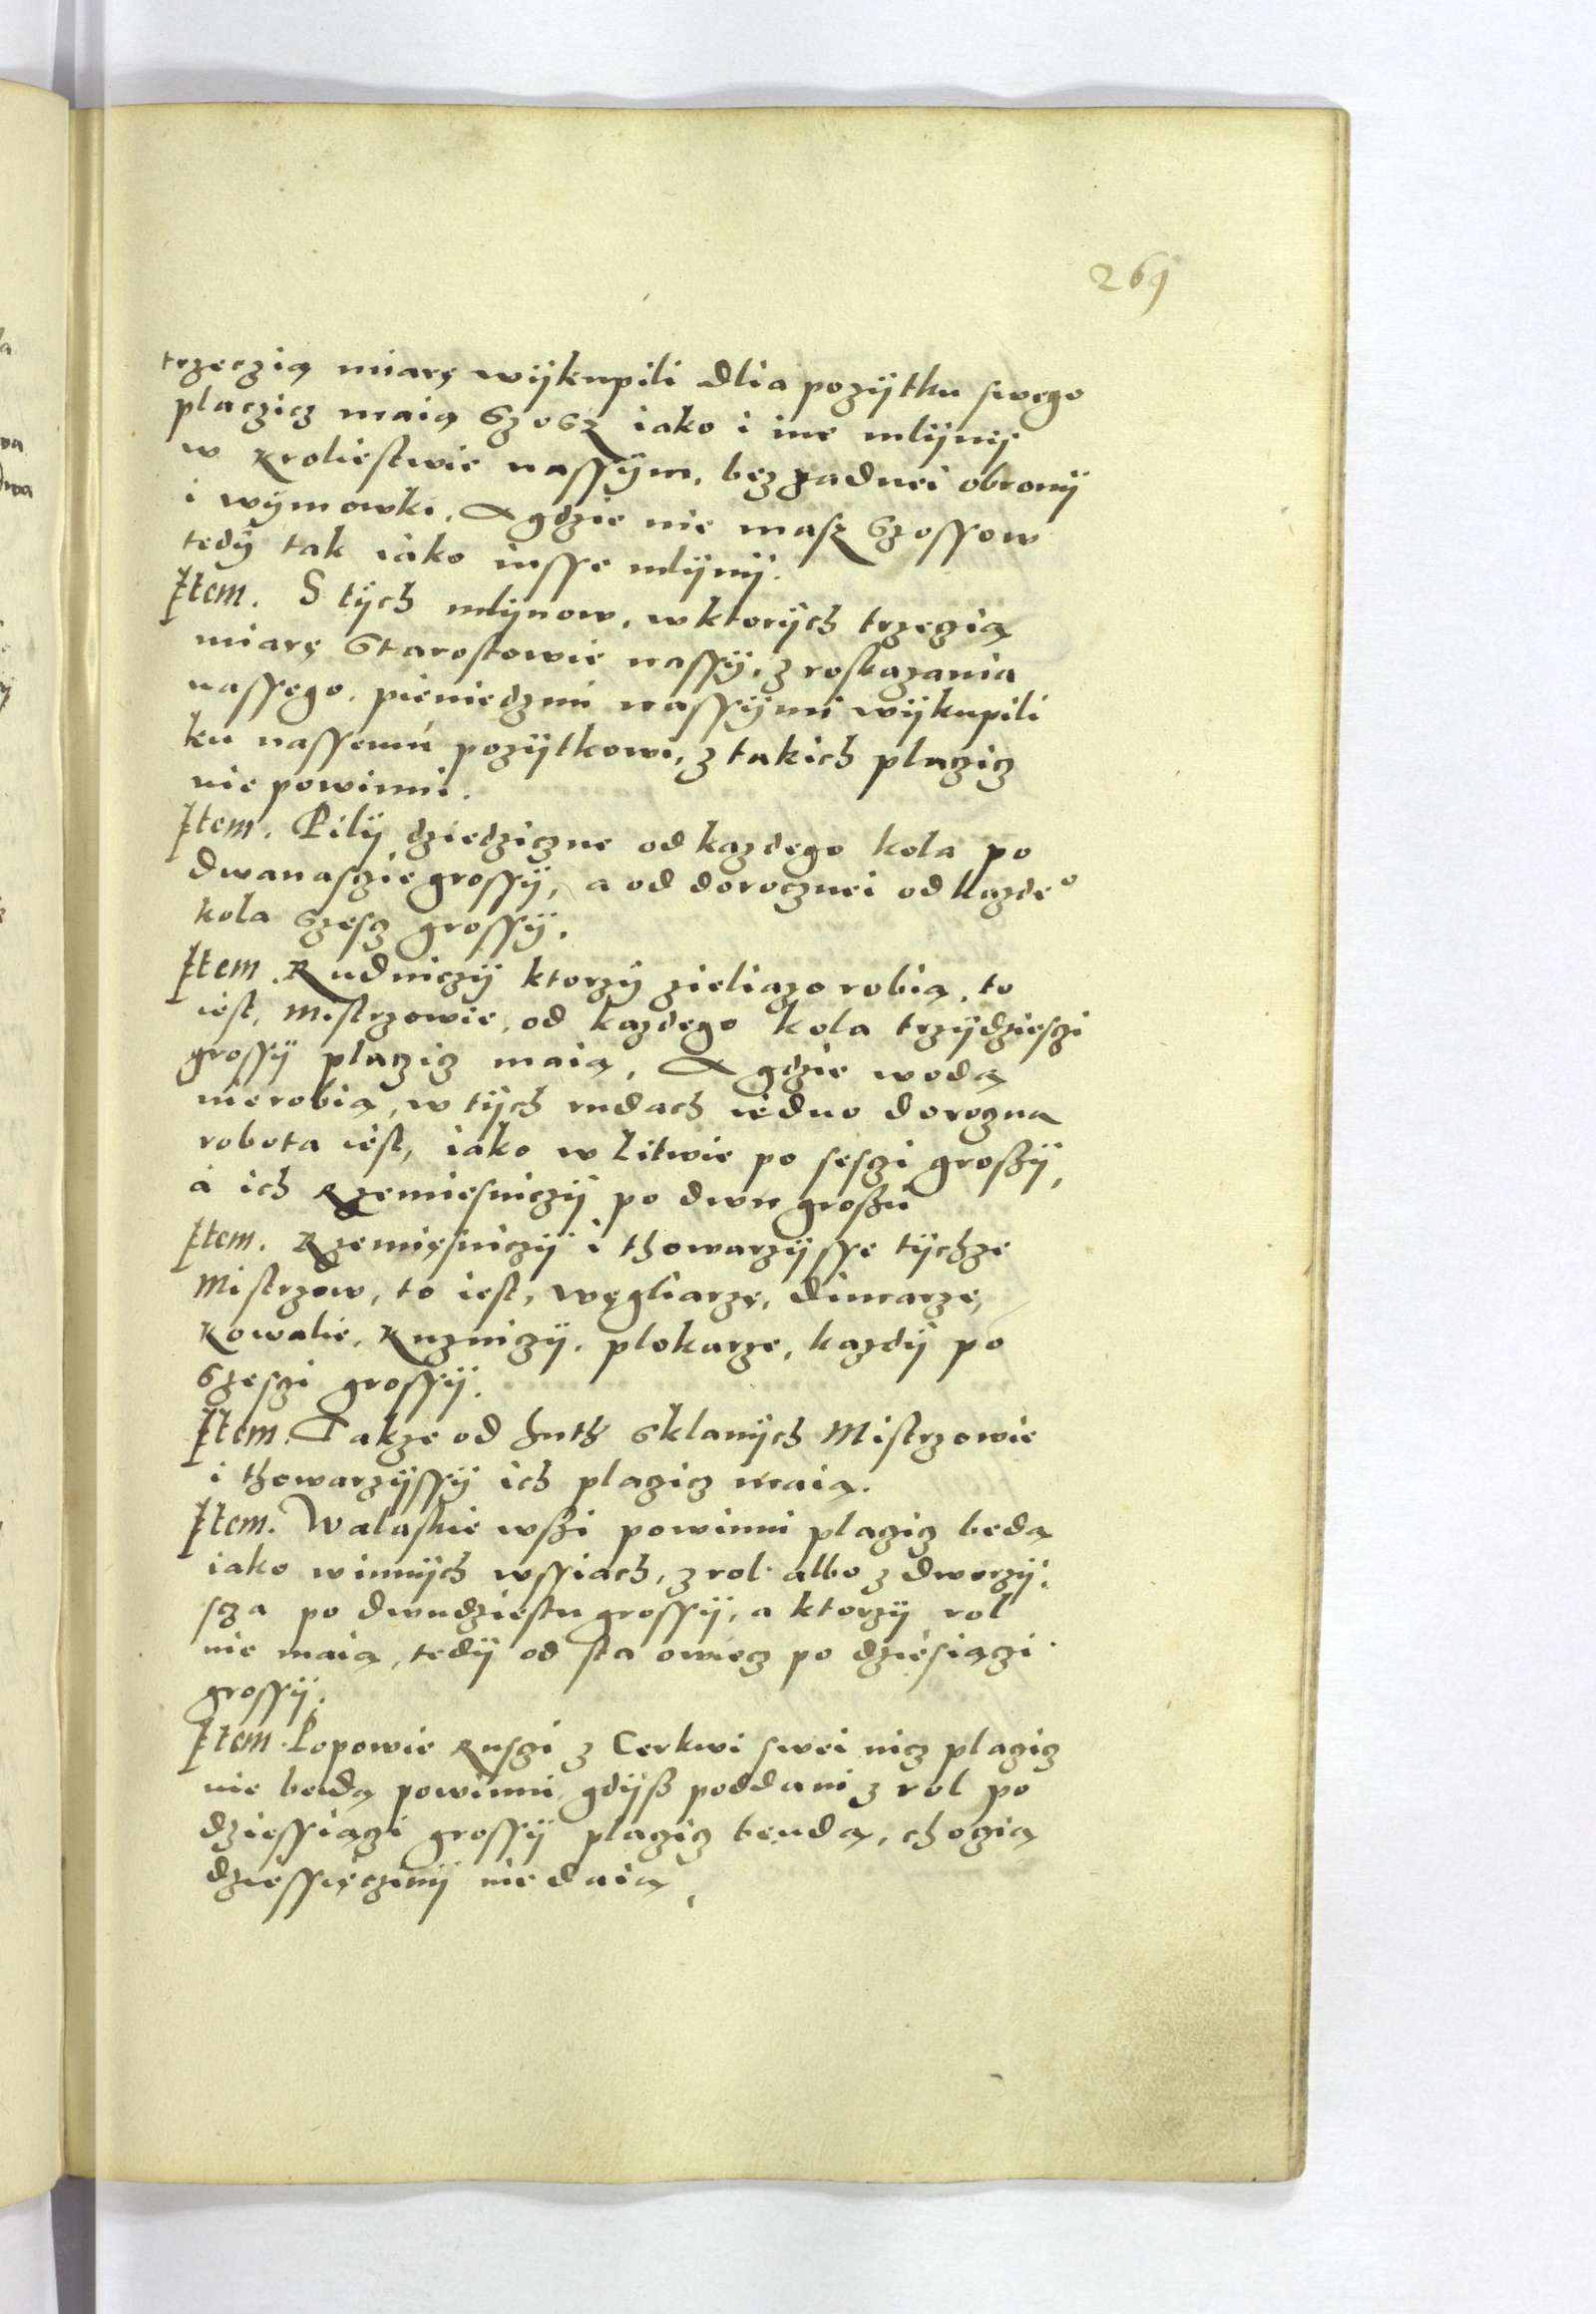 269
trzeczią miarę wÿkupili dlia pozÿtku swego
placzicz maią Szosz iako i ine mlÿnÿ
w Kroliestwie nassÿm, bez zadnei obronÿ
i wÿmowki. A gdzie nie masz Szossow
tedÿ tak iako insse mlÿnÿ.
Item. S tÿch mlÿnow, w ktorÿch trzeczią
miarę Starostowie nassÿ, z roskazania
nassego, pieniedzmi nassÿmi wÿkupili
ku nassemu pozÿtkowi, z takich placzicz
nie powinni.
Item. Pilÿ dziedziczne od kazdego kola po
dwanasczie grossÿ, a od dorocznei od kazdeo
kola szescz grossÿ.
Item. Rudniczÿ ktorzÿ zieliazo robią, to
iest, Mistrzowie, od kazdego kola trzÿdziesczi
grossÿ placzicz maią, A gdzie wodą
nie robią, w tÿch rudach iedno doroczna
robota iest, iako w Litwie po sesczi groszÿ,
a ich Rzemiesniczÿ po dwu groszu
Item. Rzemięsniczÿ i thowarzÿsse tÿchze
Mistrzow, to iest, węgliarze, dimarze,
Kowalie, Kuzniczÿ, plokarze, kazdÿ po
szesczi grossÿ.
Item. Takze od huth sklanÿch Mistrzowie
i thowarzÿssÿ ich placzicz maią.
Item. Walaskie wszi powinni placzicz bedą
iako w innÿch wssiach, z rol albo z dworzÿ,
scza po dwudziestu grossÿ, a ktorzÿ rol
nie maią, tedÿ od sta owiecz po dziesiączi
grossÿ.
Item. Popowie Rusczi z Cerkwi swei nicz placzicz
nie bendą powinni, gdÿsz poddani z rol po
dziessiączi grossÿ placzicz bendą, choczią
dziessięczinÿ nie daią,